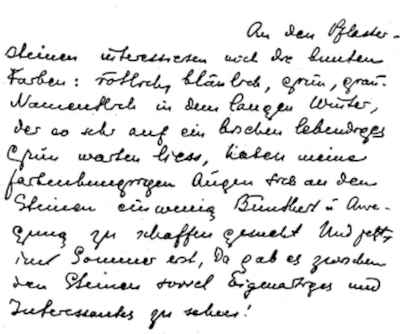 An den Pflaster-
steinen interessieren mich die bunten
Farben: rötlich, bläulich, grün, grau.
Namentlich in dem langen Winter,
der so sehr auf ein bischen lebendiges
Grün warten liess, haben meine
farbenhungrigen Augen sich an den
Steinen ein wenig Buntheit u Anre-
gung zu schaffen gesucht Und jetzt,
im Sommer erst, Da gab es zwischen
den Steinen soviel Eigenartiges und
Interessantes zu sehen!